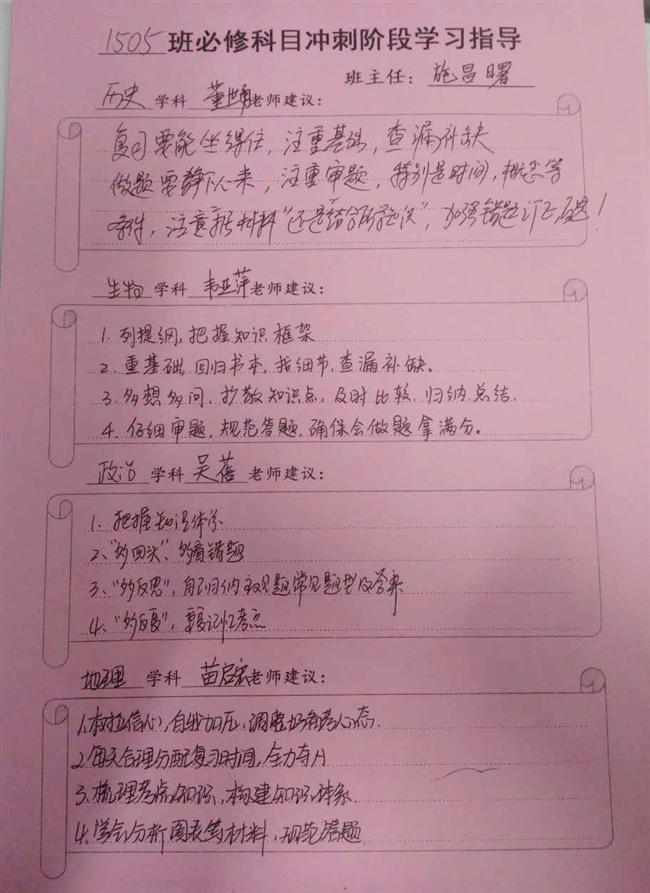 1505 班必修科目冲刺阶段学习指导
班主任: 施昌曙
历史 学科 董 老师建议:
复习要能坐得住, 注重基础, 查漏补缺
做题要静下心来, 注重审题, 特别是时间, 概念等
条件, 注意“据材料”还是“结合所学知识”, 加强错题订正 !
生物 学科 韦亚萍老师建议:
1. 列提纲, 把握知识框架
2. 重基础, 回归书本, 找细节, 查漏补缺。
3. 多想多问、抄散知识点, 及时比较、归纳总结.
4. 仔细审题, 规范答题, 确保会做题拿满分。
政治 学科 吴蓓 老师建议:
1. 把握知识体系
2. “多回头”, 多看错题
3. “多反思”, 自己归纳主观题常见题型及答案
4. “多反复”, 记忆考点
地理 学科 苗 老师建议:
1. 树立信心, 自我加压, 调整好备考心态.
2. 每天合理分配复习时间, 全力夺A
3. 梳理考点知识, 构建知识体系
4. 学会分析图表等材料, 规范答题